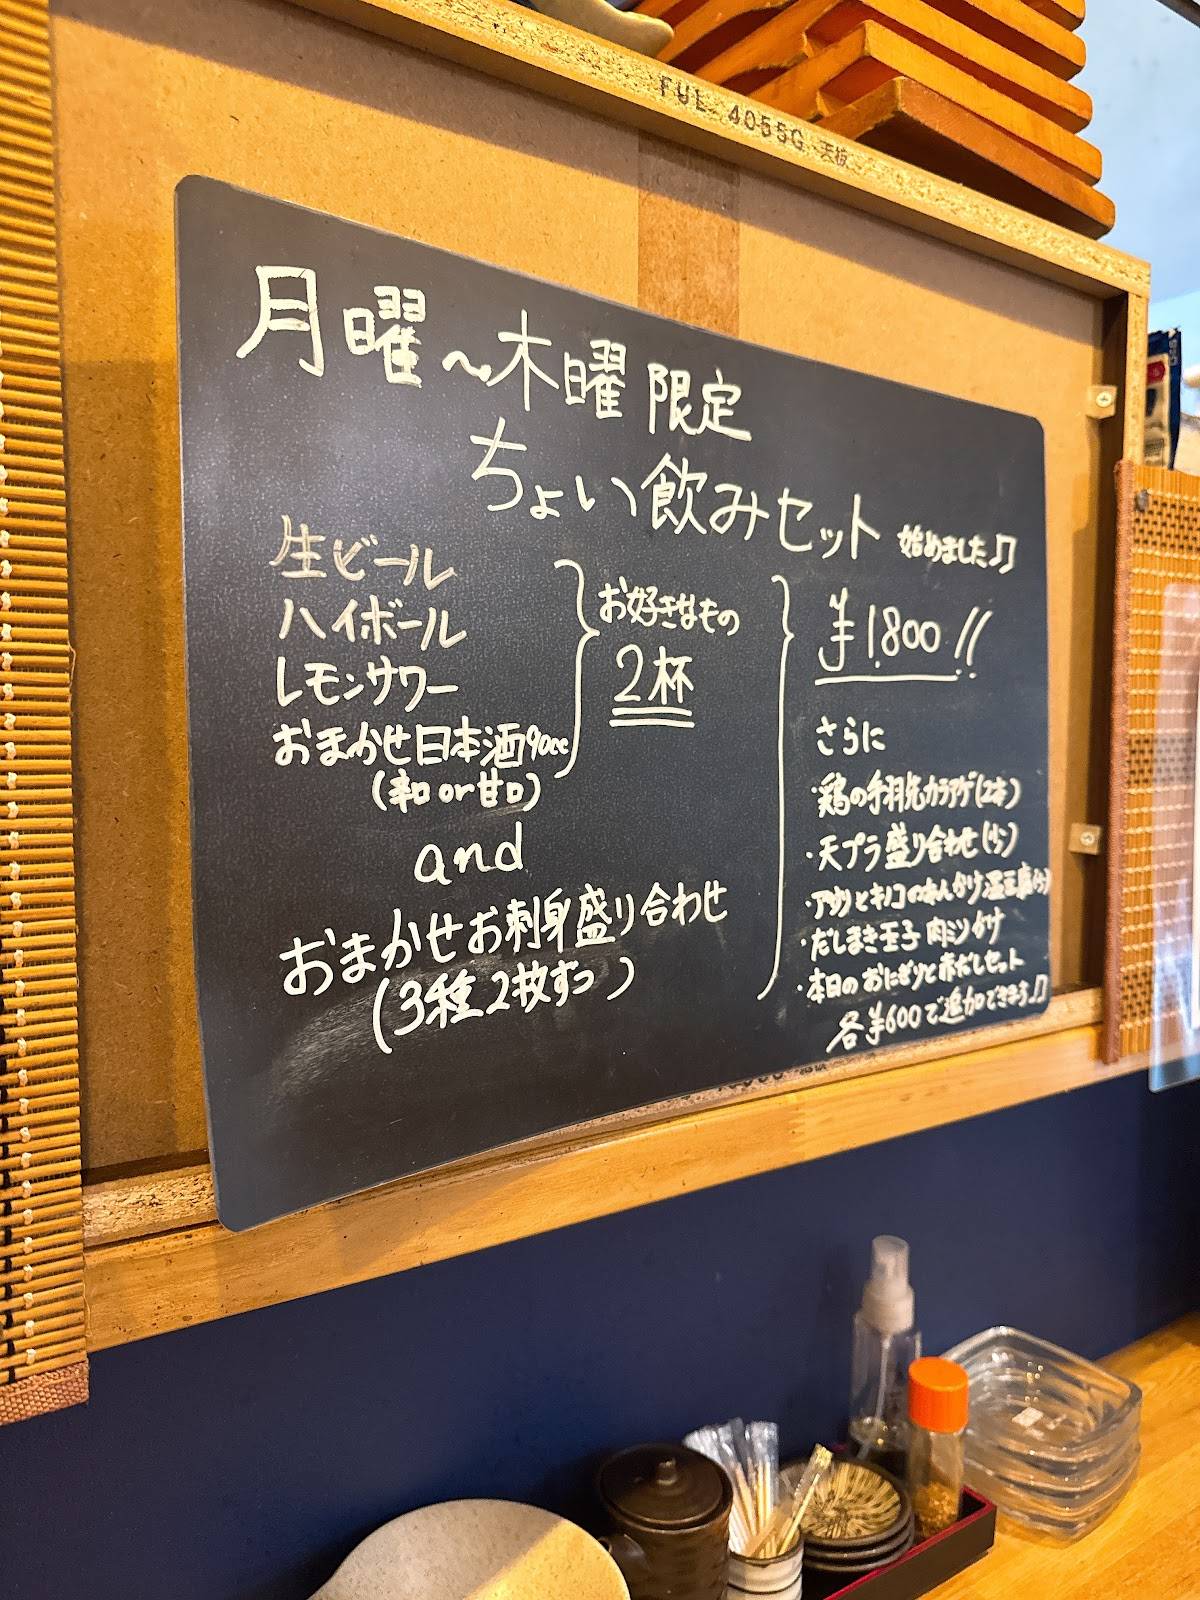 FUL 4055G 天板
月曜〜木曜 限定
ちょい飲みセット 始めました♪
生ビール
ハイボール
レモンサワー
おまかせ日本酒90cc
(辛口or甘口)
お好きなもの
2杯
and
おまかせお刺身盛り合わせ
(3種2枚ずつ)
¥1,800!!
さらに
・鶏の手羽先カラアゲ(2本)
・天プラ盛り合わせ(小)
・アサリとキノコのあんかけ温豆腐(小)
・だしまき玉子 肉ミソがけ
・本日のおにぎりと赤だしセット
各¥600で追加できます♪